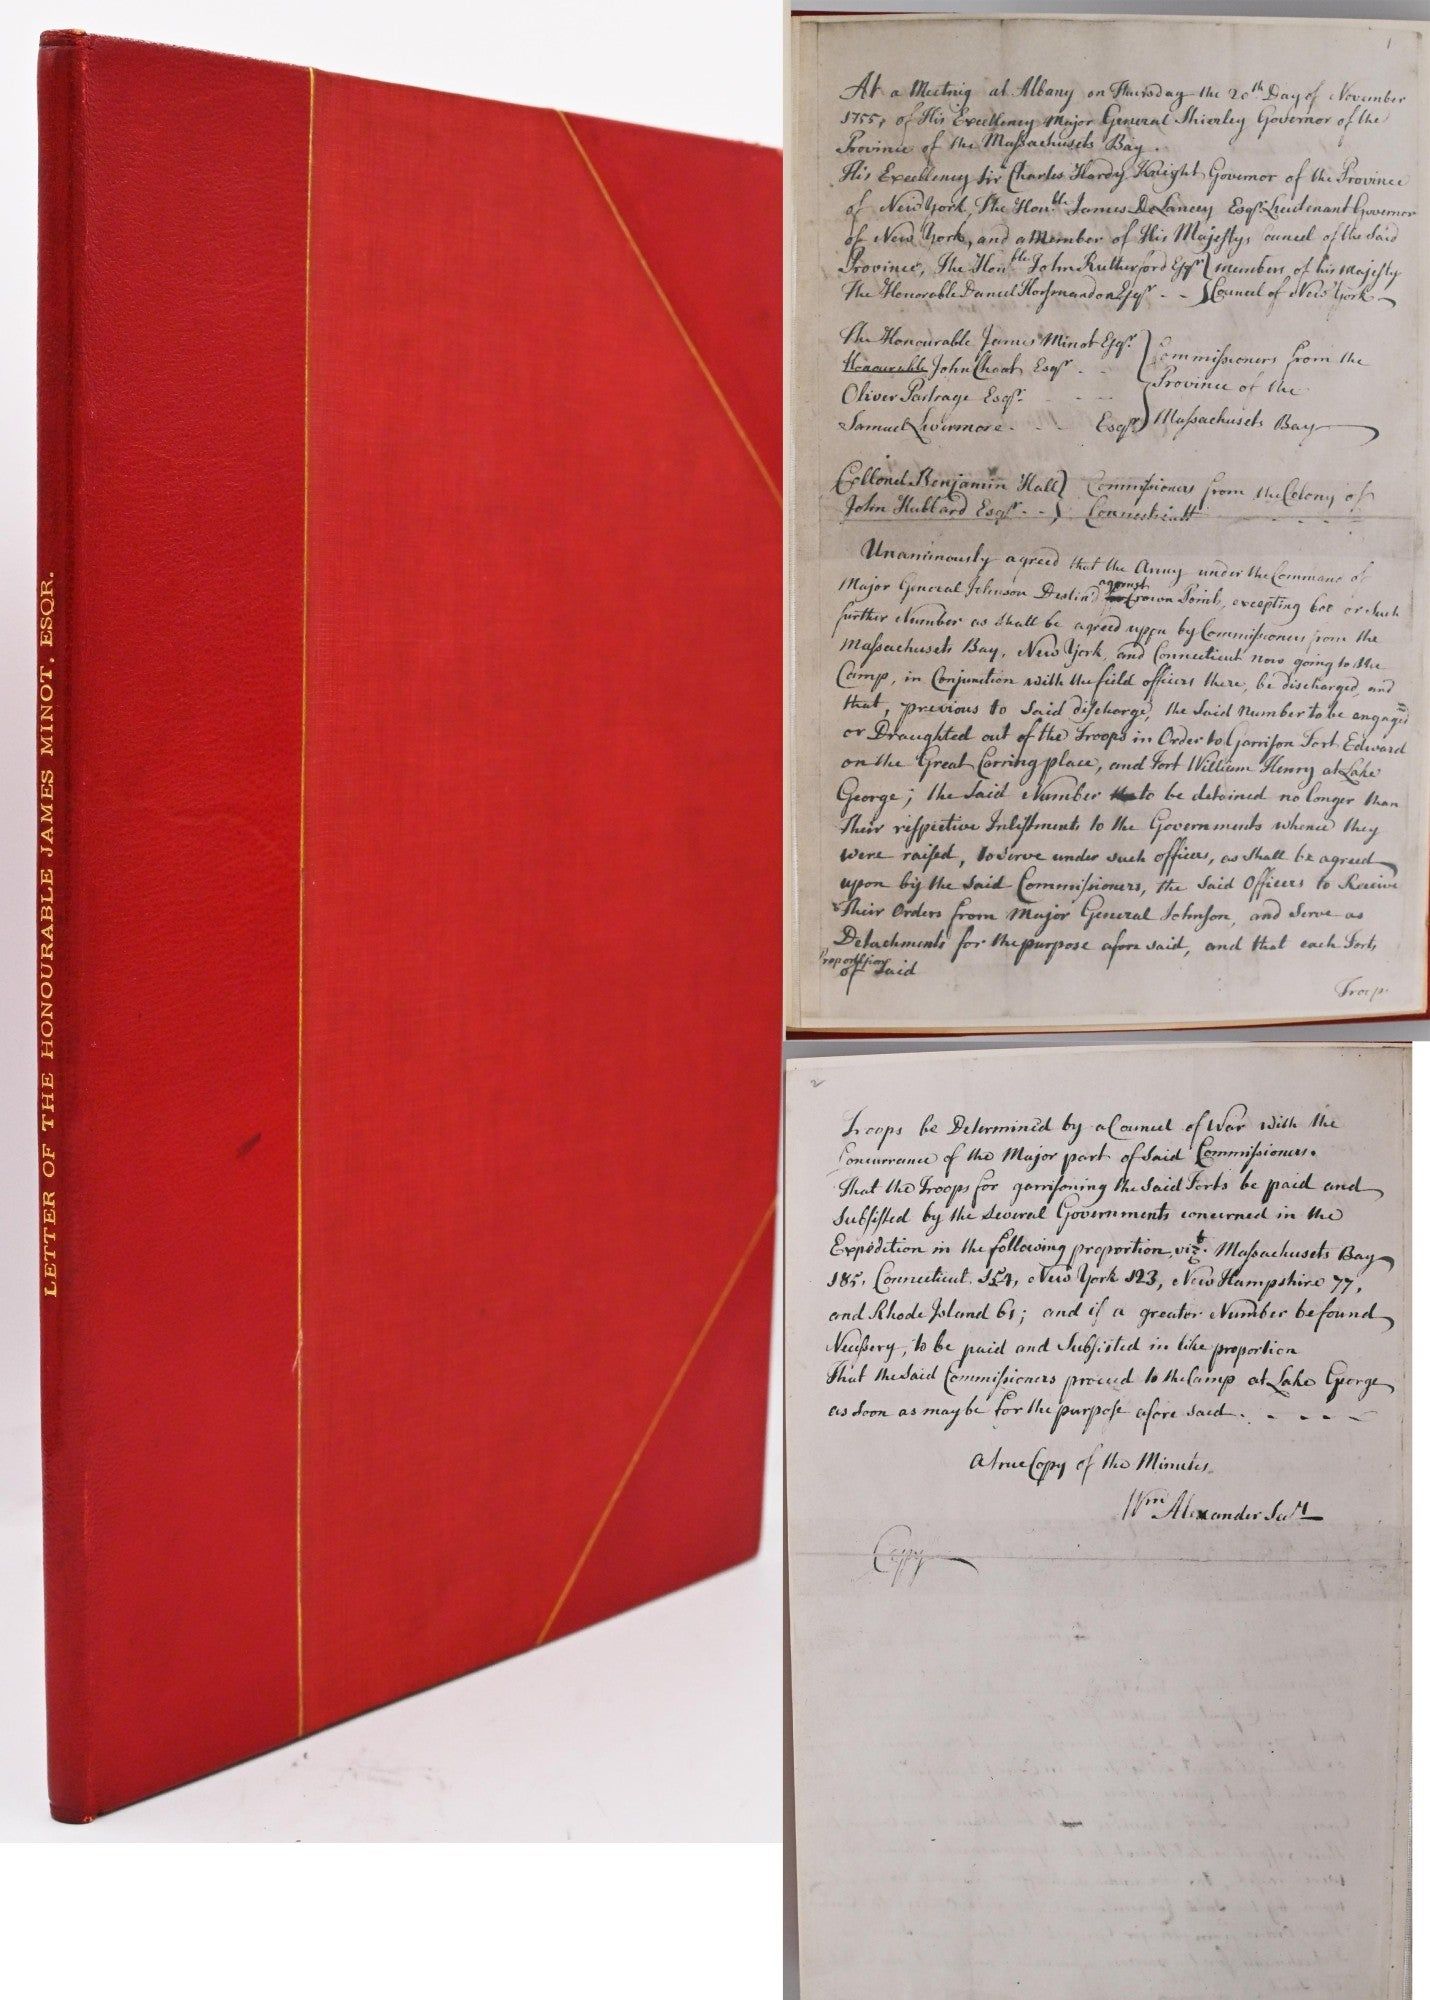 LETTER OF THE HONOURABLE JAMES MINOT. ESQR.
1
At a Meeting at Albany on Thursday the 20th Day of November
1755, of His Excellency Major General Shirley Governor of the
Province of the Massachusets Bay.
His Excellency Sir Charles Hardy Knight Governor of the Province
of New York, The Honble James DeLancey Esqr Lieutenant Governor
of New York, and a Member of His Majestys Council of the said
Province, The Honble John Rutherford Esqr } members of his Majesty
The Honorable Daniel Horsmandon Esqr - - } Council of New York
The Honourable James Minot Esqr.
Honourable John Choat Esqr - -
Oliver Partrage Esqr. - - -
Samuel Livermore - - - Esqr
} Commissioners from the
Province of the
Massachusets Bay
Collonel Benjamin Hall } Commissioners from the Colony of
John Hubbard Esqr. - - } Connecticutt - - - -
Unanimously agreed that the Army under the Command of
Major General Johnson Destin'd against Crown Point, excepting 600 or such
further Number as shall be agreed upon by Commissioners from the
Massachusets Bay, New York, and Connecticut now going to the
Camp, in Conjunction with the field officers there, be discharged, and
that, previous to said discharge, the said number to be engaged
or Draughted out of the Troops in Order to Garrison Fort Edward
on the Great Carring place, and Fort William Henry at Lake
George; the said Number to be detained no longer than
their respective Inlistments to the Governments whence they
were raised, to serve under such officers, as shall be agreed
upon by the said Commissioners, the said Officers to Receive
their Orders from Major General Johnson, and serve as
Detachments for the purpose afore said, and that each Forts
Proportion
of said
Troop
2
Troops be Determined by a Council of War with the
Concurrance of the Major part of said Commissioners.
That the Troops for garrisoning the said Forts be paid and
Subsisted by the Several Governments concerned in the
Expedition in the following proportion, vizt. Massachusets Bay
185, Connecticut 154, New York 123, New Hampshire 77,
and Rhode Island 61; and if a greater Number be found
Necessery, to be paid and Subsisted in like proportion
That the said Commissioners proceed to the Camp at Lake George
as soon as may be for the purpose afore said. - - - -
A true Copy of the Minutes.
Wm Alexander Secry
Copy